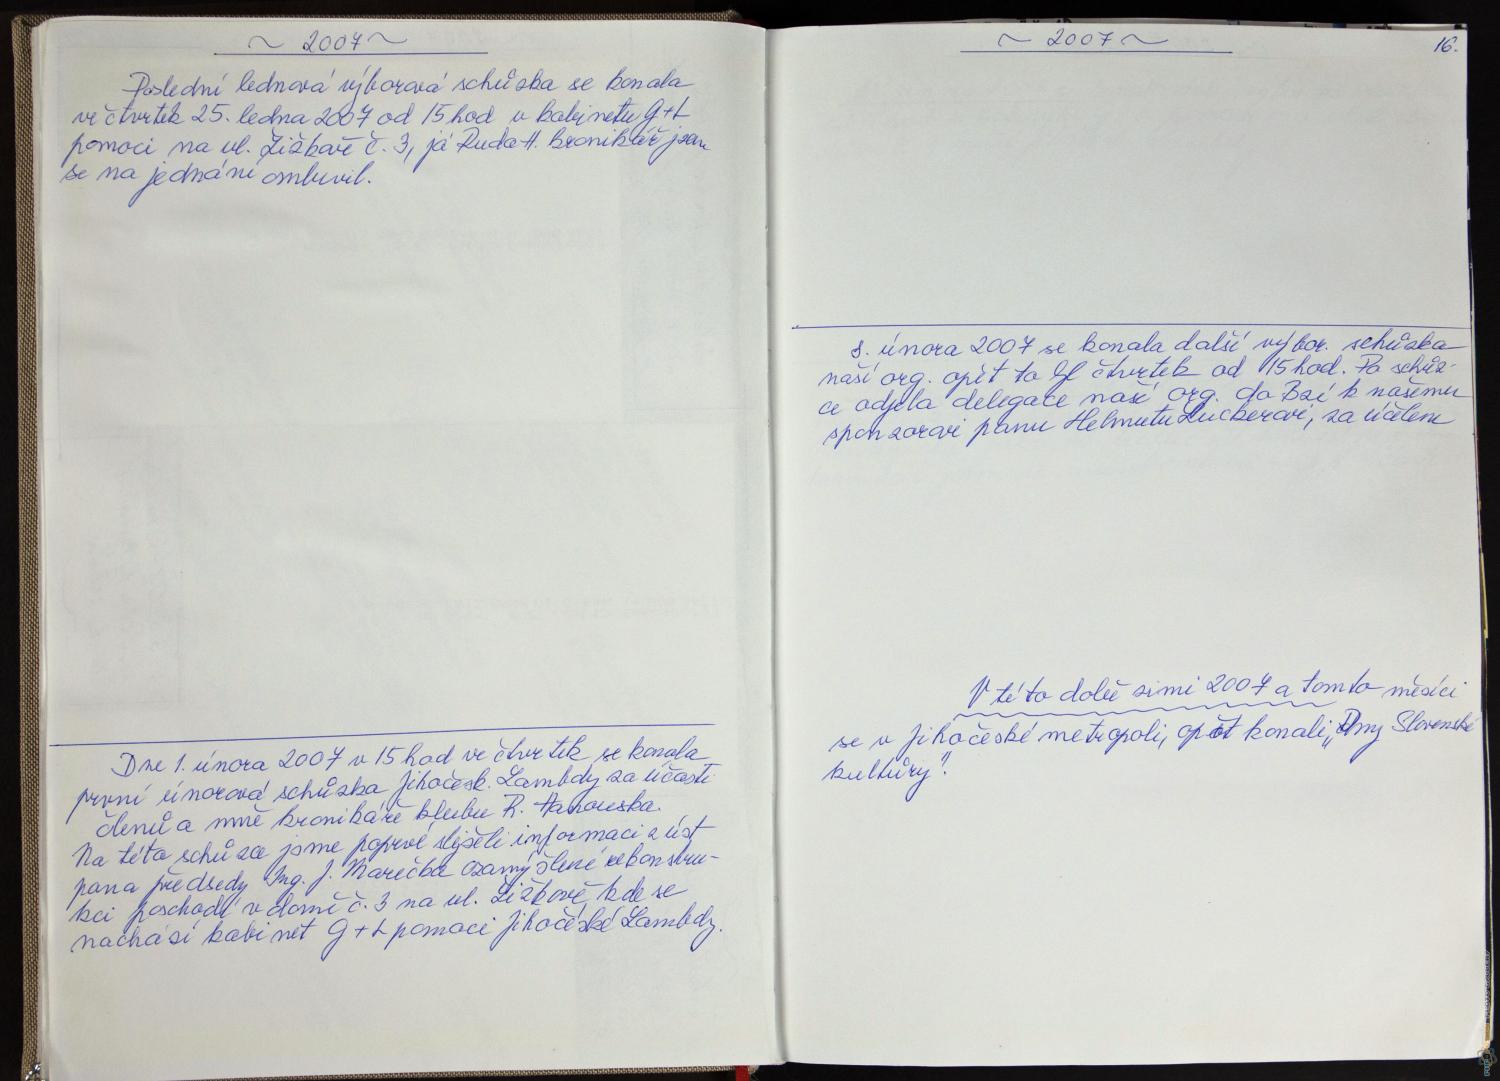 ~ 2007 ~
Poslední lednová výborová schůzka se konala
ve čtvrtek 25. ledna 2007 od 15 hod v kabinetu G+L
pomoci na ul. Žižkově č. 3, já Ruda H. kronikář jsem
se na jednání omluvil.
Dne 1. února 2007 v 15 hod ve čtvrtek se konala
první únorová schůzka Jihočesk. Lambdy za účasti
členů a mně kronikáře klubu R. Hanouska.
Na této schůzce jsme poprvé slyšeli informaci z úst
pana předsedy Ing. J. Marečka o zamýšlené rekonstru-
kci poschodí v domě č. 3 na ul. Žižkově, kde se
nachází kabinet G+L pomoci Jihočeské Lambdy.
~ 2007 ~
16.
8. února 2007 se konala další výbor. schůzka
naší org. opět to čtvrtek od 15 hod. Po schůz-
ce odjela delegace naší org. do Bzí k našemu
sponzorovi panu Helmutu Luckerovi, za účelem
V této době zimi 2007 a tomto měsíci
se v jihočeské metropoli, opět konali „Dny Slovenské
kultůry".